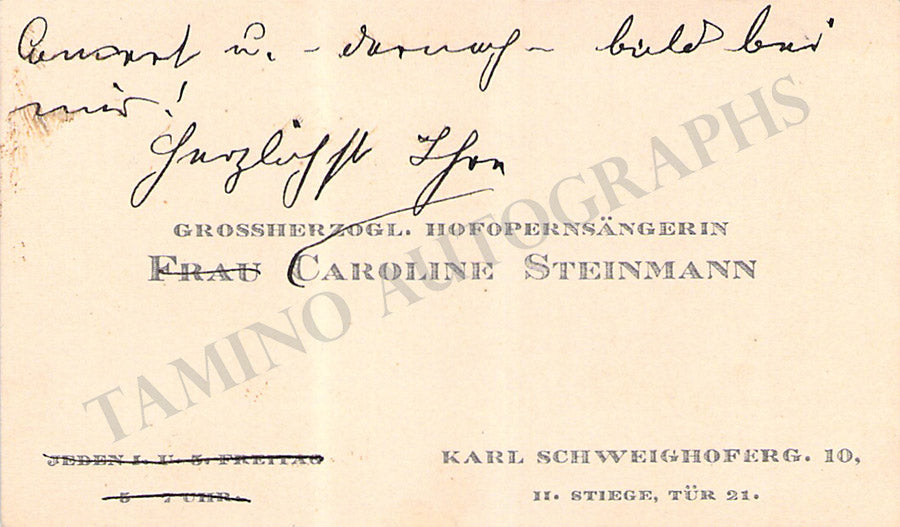 Concert u. - darnach - bald bei
mir!
Herzlichst Ihre
GROSSHERZOGL. HOFOPERNSÄNGERIN
FRAU CAROLINE STEINMANN
JEDEN 1. U. 3. FREITAG
5 - 7 UHR.
KARL SCHWEIGHOFERG. 10,
II. STIEGE, TÜR 21.
TAMINO AUTOGRAPHS